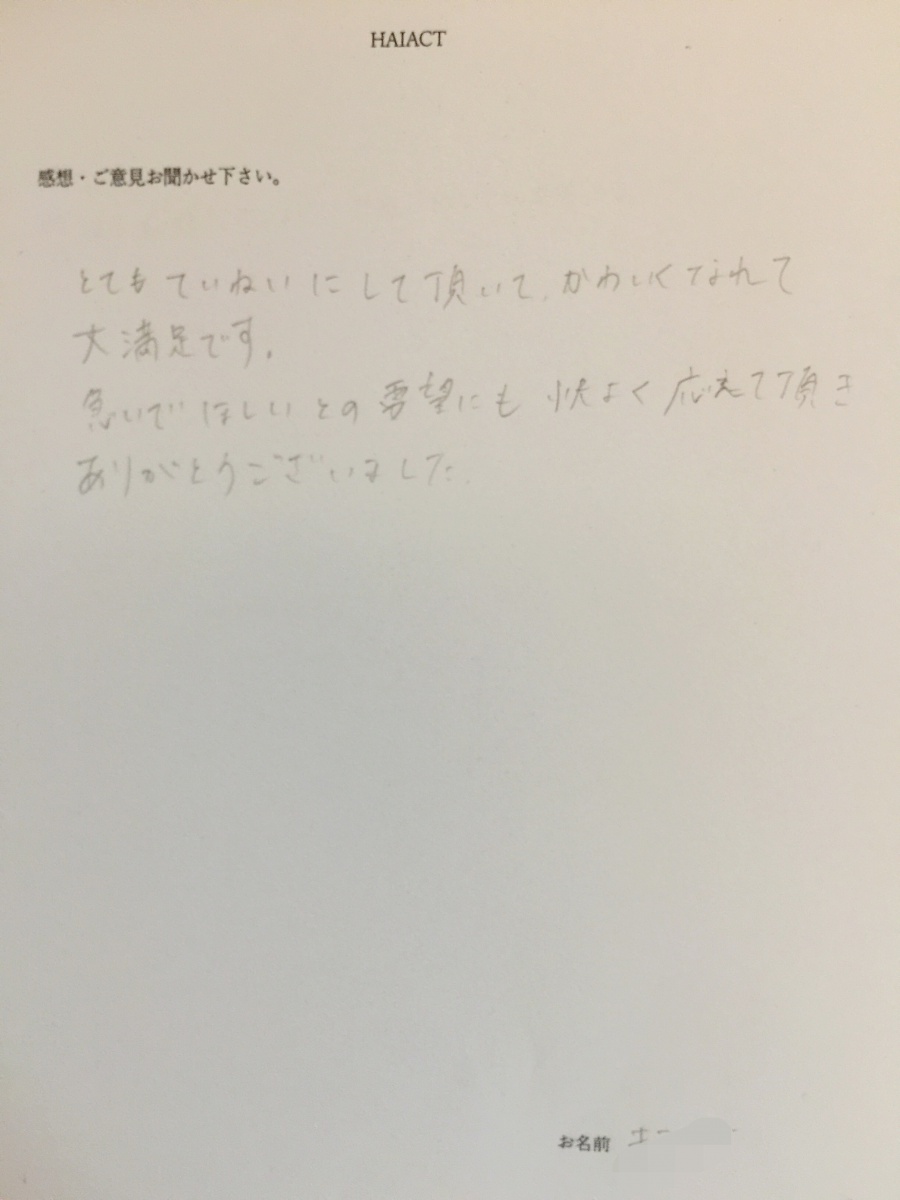 HAIACT
感想・ご意見お聞かせ下さい。
とてもていねいにして頂いて、かわいくなれて
大満足です。
急いでほしいとの要望にも快よく応えて頂き
ありがとうございました。
お名前